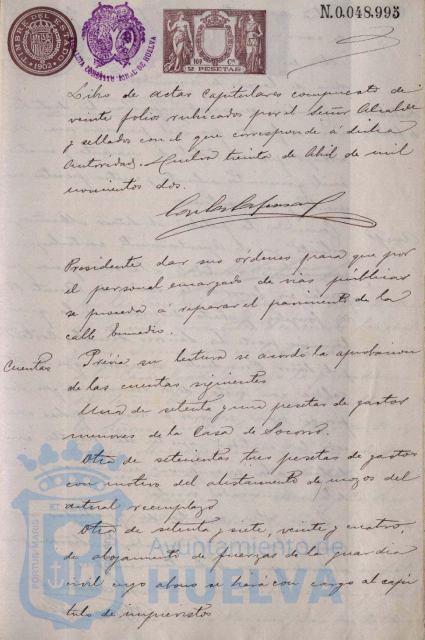 N.0.048.995
TIMBRE DEL ESTADO
1902
HUELVA
2 PESETAS
Libro de actas capitulares compuesto de
veinte folios rubricados por el Señor Alcalde
y sellados con el que corresponde á dicha
Autoridad. Huelva treinta de Abril de mil
novecientos dos.
Presidente dar sus órdenes para que por
el personal encargado de vias públicas
se proceda á reparar el pavimento de la
calle
Cuentas
Prévia su lectura se acordó la aprobacion
de las cuentas siguientes
Una de setenta y una pesetas de gastos
menores de la Casa de Socorro.
Otra de setecientas tres pesetas de gastos
con motivo del alistamiento de mozos del
actual reemplazo
Otra de setenta y siete, veinte y cuatro,
de alojamiento de fuerzas de la guardia
civil cuyo abono se hará con cargo al capi
tulo de imprevistos
PORTUS MARIS ET
Ayuntamiento de
HUELVA